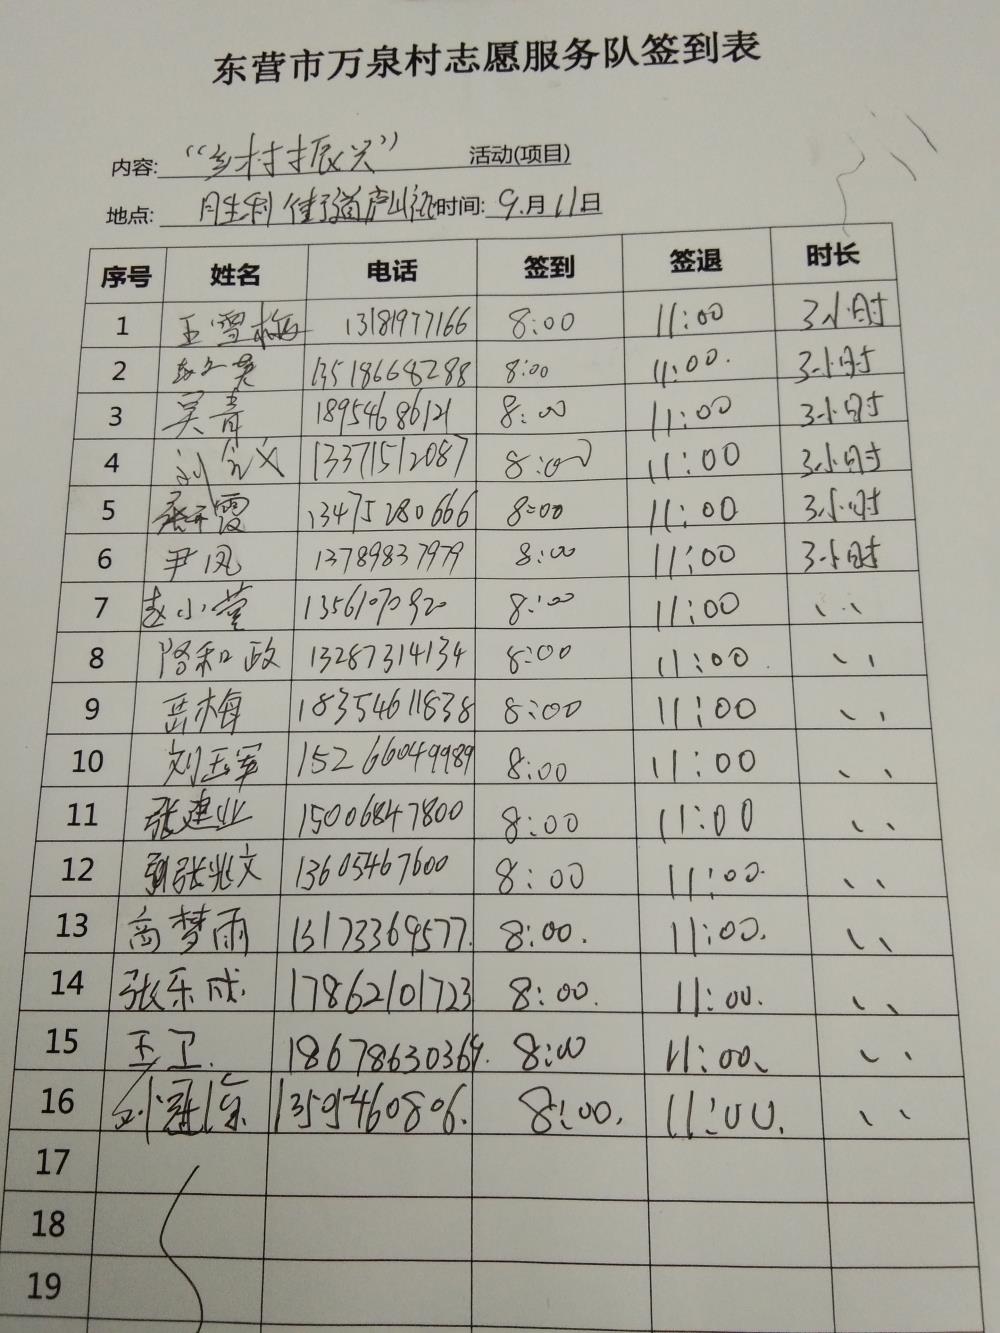 东营市万泉村志愿服务队签到表
内容: “乡村振兴” 活动(项目)
地点: 胜利街道庐山社 时间: 9.月11日
序号 姓名 电话 签到 签退 时长
1 王雪梅 13181977166 8:00 11:00 3小时
2 13518668288 8:00 11:00. 3小时
3 吴青 18954686121 8:00 11:00 3小时
4 刘余义 13371512087 8:00 11:00 3小时
5 张霞 13475280666 8:00 11:00 3小时
6 尹凤 13789837979 8:00 11:00 3小时
7 赵小莹 8:00 11:00 、、
8 路和政 13287314134 8:00 11:00 、、
9 岳梅 18354611838 8:00 11:00 、、
10 刘玉军 15266049989 8:00 11:00 、、
11 张建业 15006847800 8:00 11:00 、、
12 张兆文 13605467600 8:00 11:00. 、、
13 高梦雨 13173369577. 8:00. 11:00. 、、
14 张乐成. 17862101723 8:00. 11:00. 、、
15 王卫. 18678630369. 8:00 11:00、 、、
16 刘冠 8:00. 11:00. 、、
17
18
19